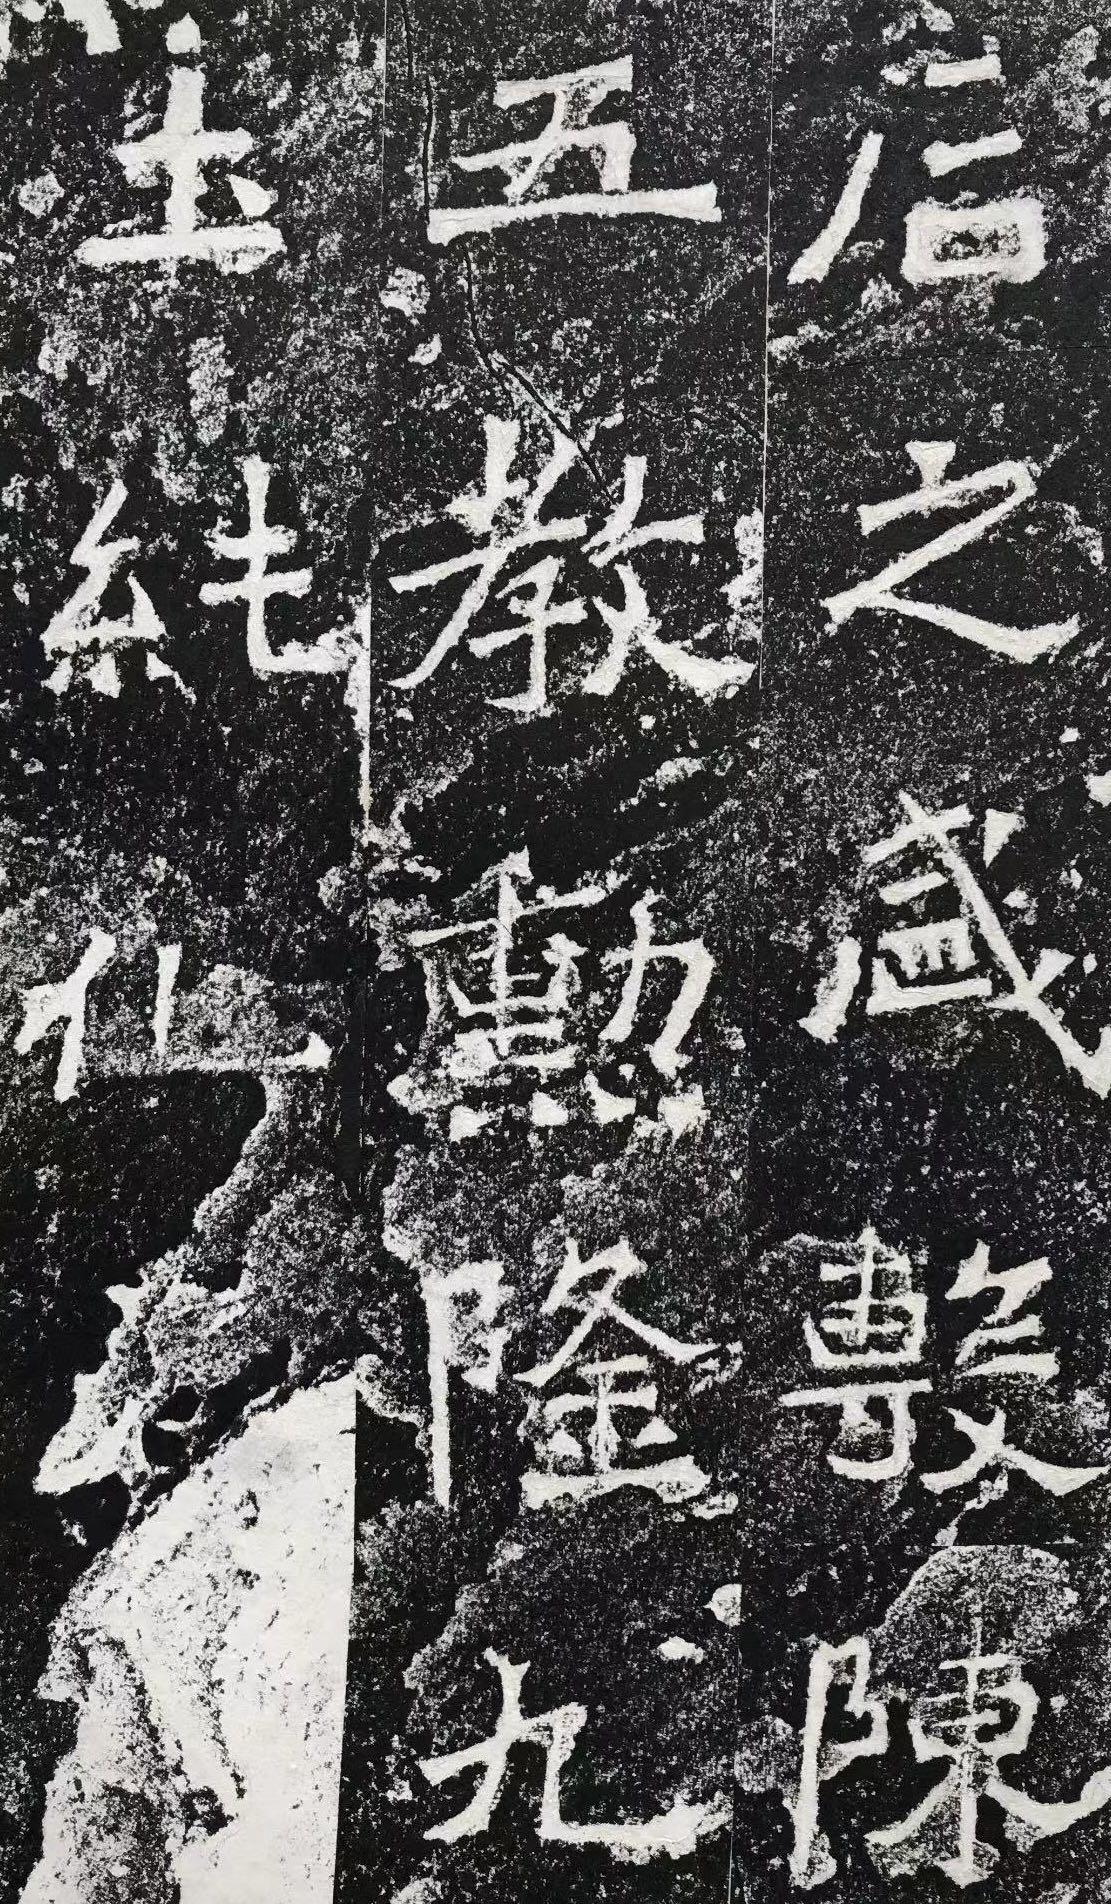 后之盛敷陳
五教勳隆九
土純化